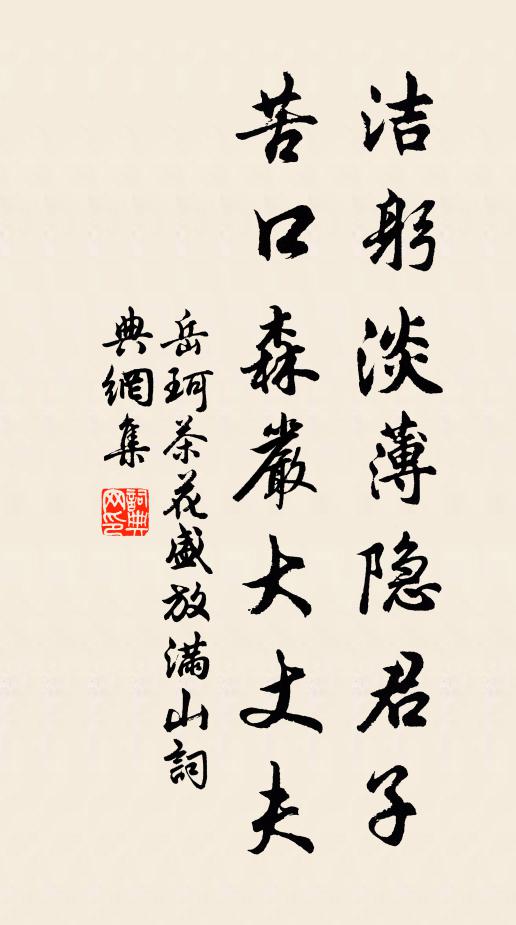 洁躬淡薄隐君子
苦口森嚴大丈夫
岳珂茶花盛放满山詞
典網集
詞典
网印